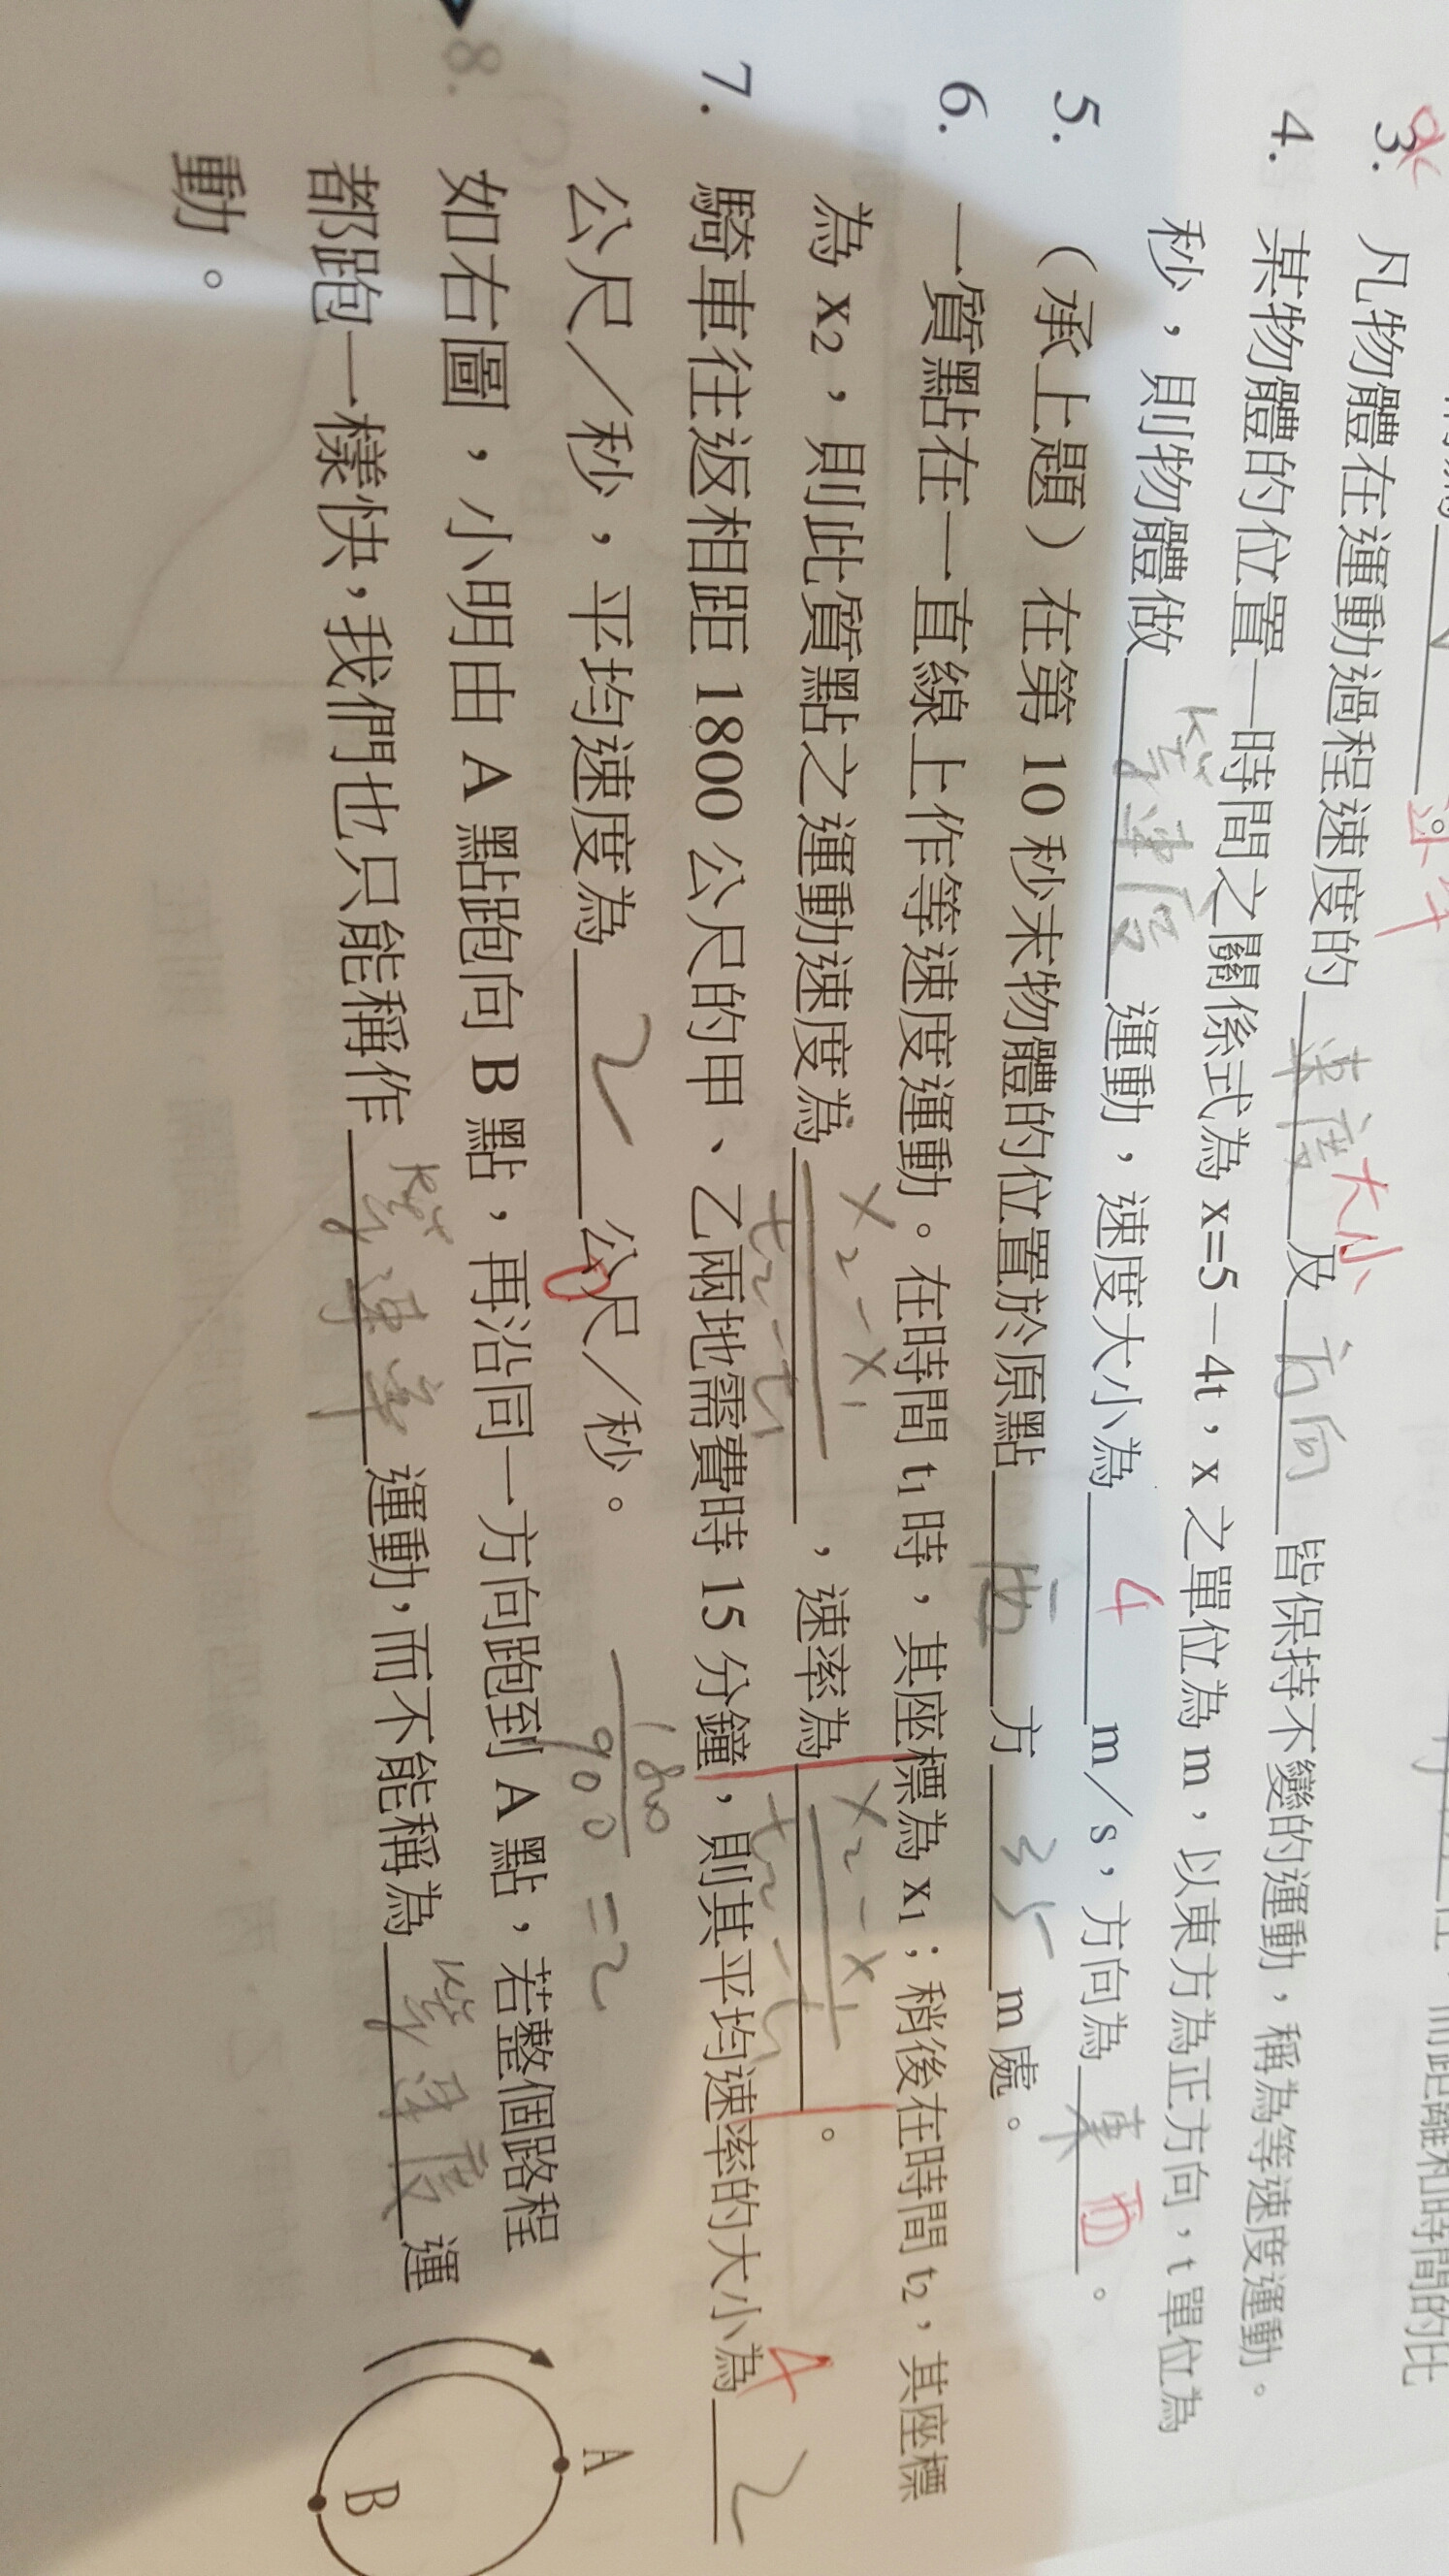 3. 凡物體在運動過程速度的 速度 大小 及 方向 皆保持不變的運動，稱為等速度運動。
4. 某物體的位置－時間之關係式為 x=5－4t，x 之單位為 m，以東方為正方向，t 單位為
秒，則物體做 等速度 運動，速度大小為 4 m／s，方向為 東 西 。
5. （承上題）在第 10 秒末物體的位置於原點 西 方 35 m 處。
6. 一質點在一直線上作等速度運動。在時間 t₁ 時，其座標為 x₁；稍後在時間 t₂，其座標
為 x₂，則此質點之運動速度為 x₂-x₁ / t₂-t₁ ，速率為 x₂-x₁ / t₂-t₁ 。
7. 騎車往返相距 1800 公尺的甲、乙兩地需費時 15 分鐘，則其平均速率的大小為 4 2
公尺／秒，平均速度為 2 0 公尺／秒。
1800 / 900 = 2
8. 如右圖，小明由 A 點跑向 B 點，再沿同一方向跑到 A 點，若整個路程
都跑一樣快，我們也只能稱作 等速率 運動，而不能稱為 等速度 運
動。
A
B